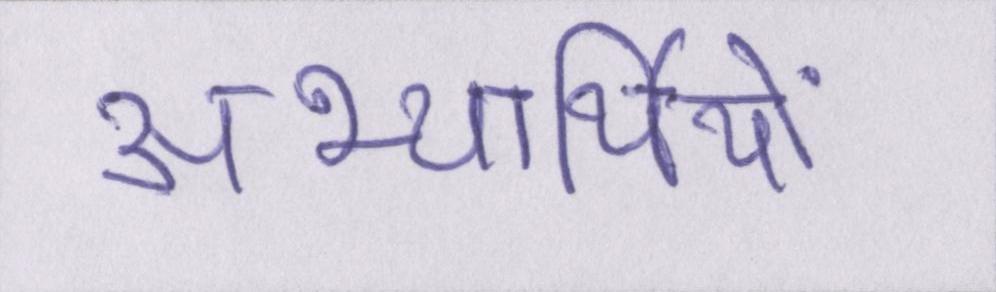 अभ्यार्थियों